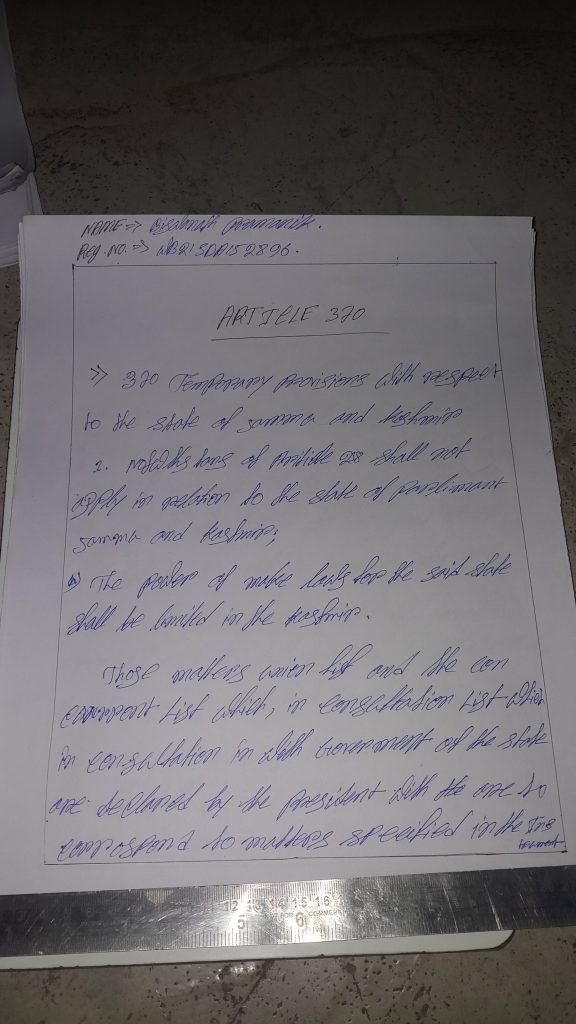 NAME => Bisabnath Pramanik.
Reg. No. => WB21SDA152896.
ARTICLE 370
=> 370 Temporary provisions with respect
to the state of Jamma and Kashmir
1. of Article 238 shall not
apply in relation to the state of
Jamma and Kashmir;
The power of make laws for the said state
shall be limited in the Kashmir.
Those matters union list and the con
current List which, in consultation List which
in consultation in with Government of the state
are declared by the president with the are to
correspond to matters specified in the Ins
trument.
12 13 14 15 16
5 6